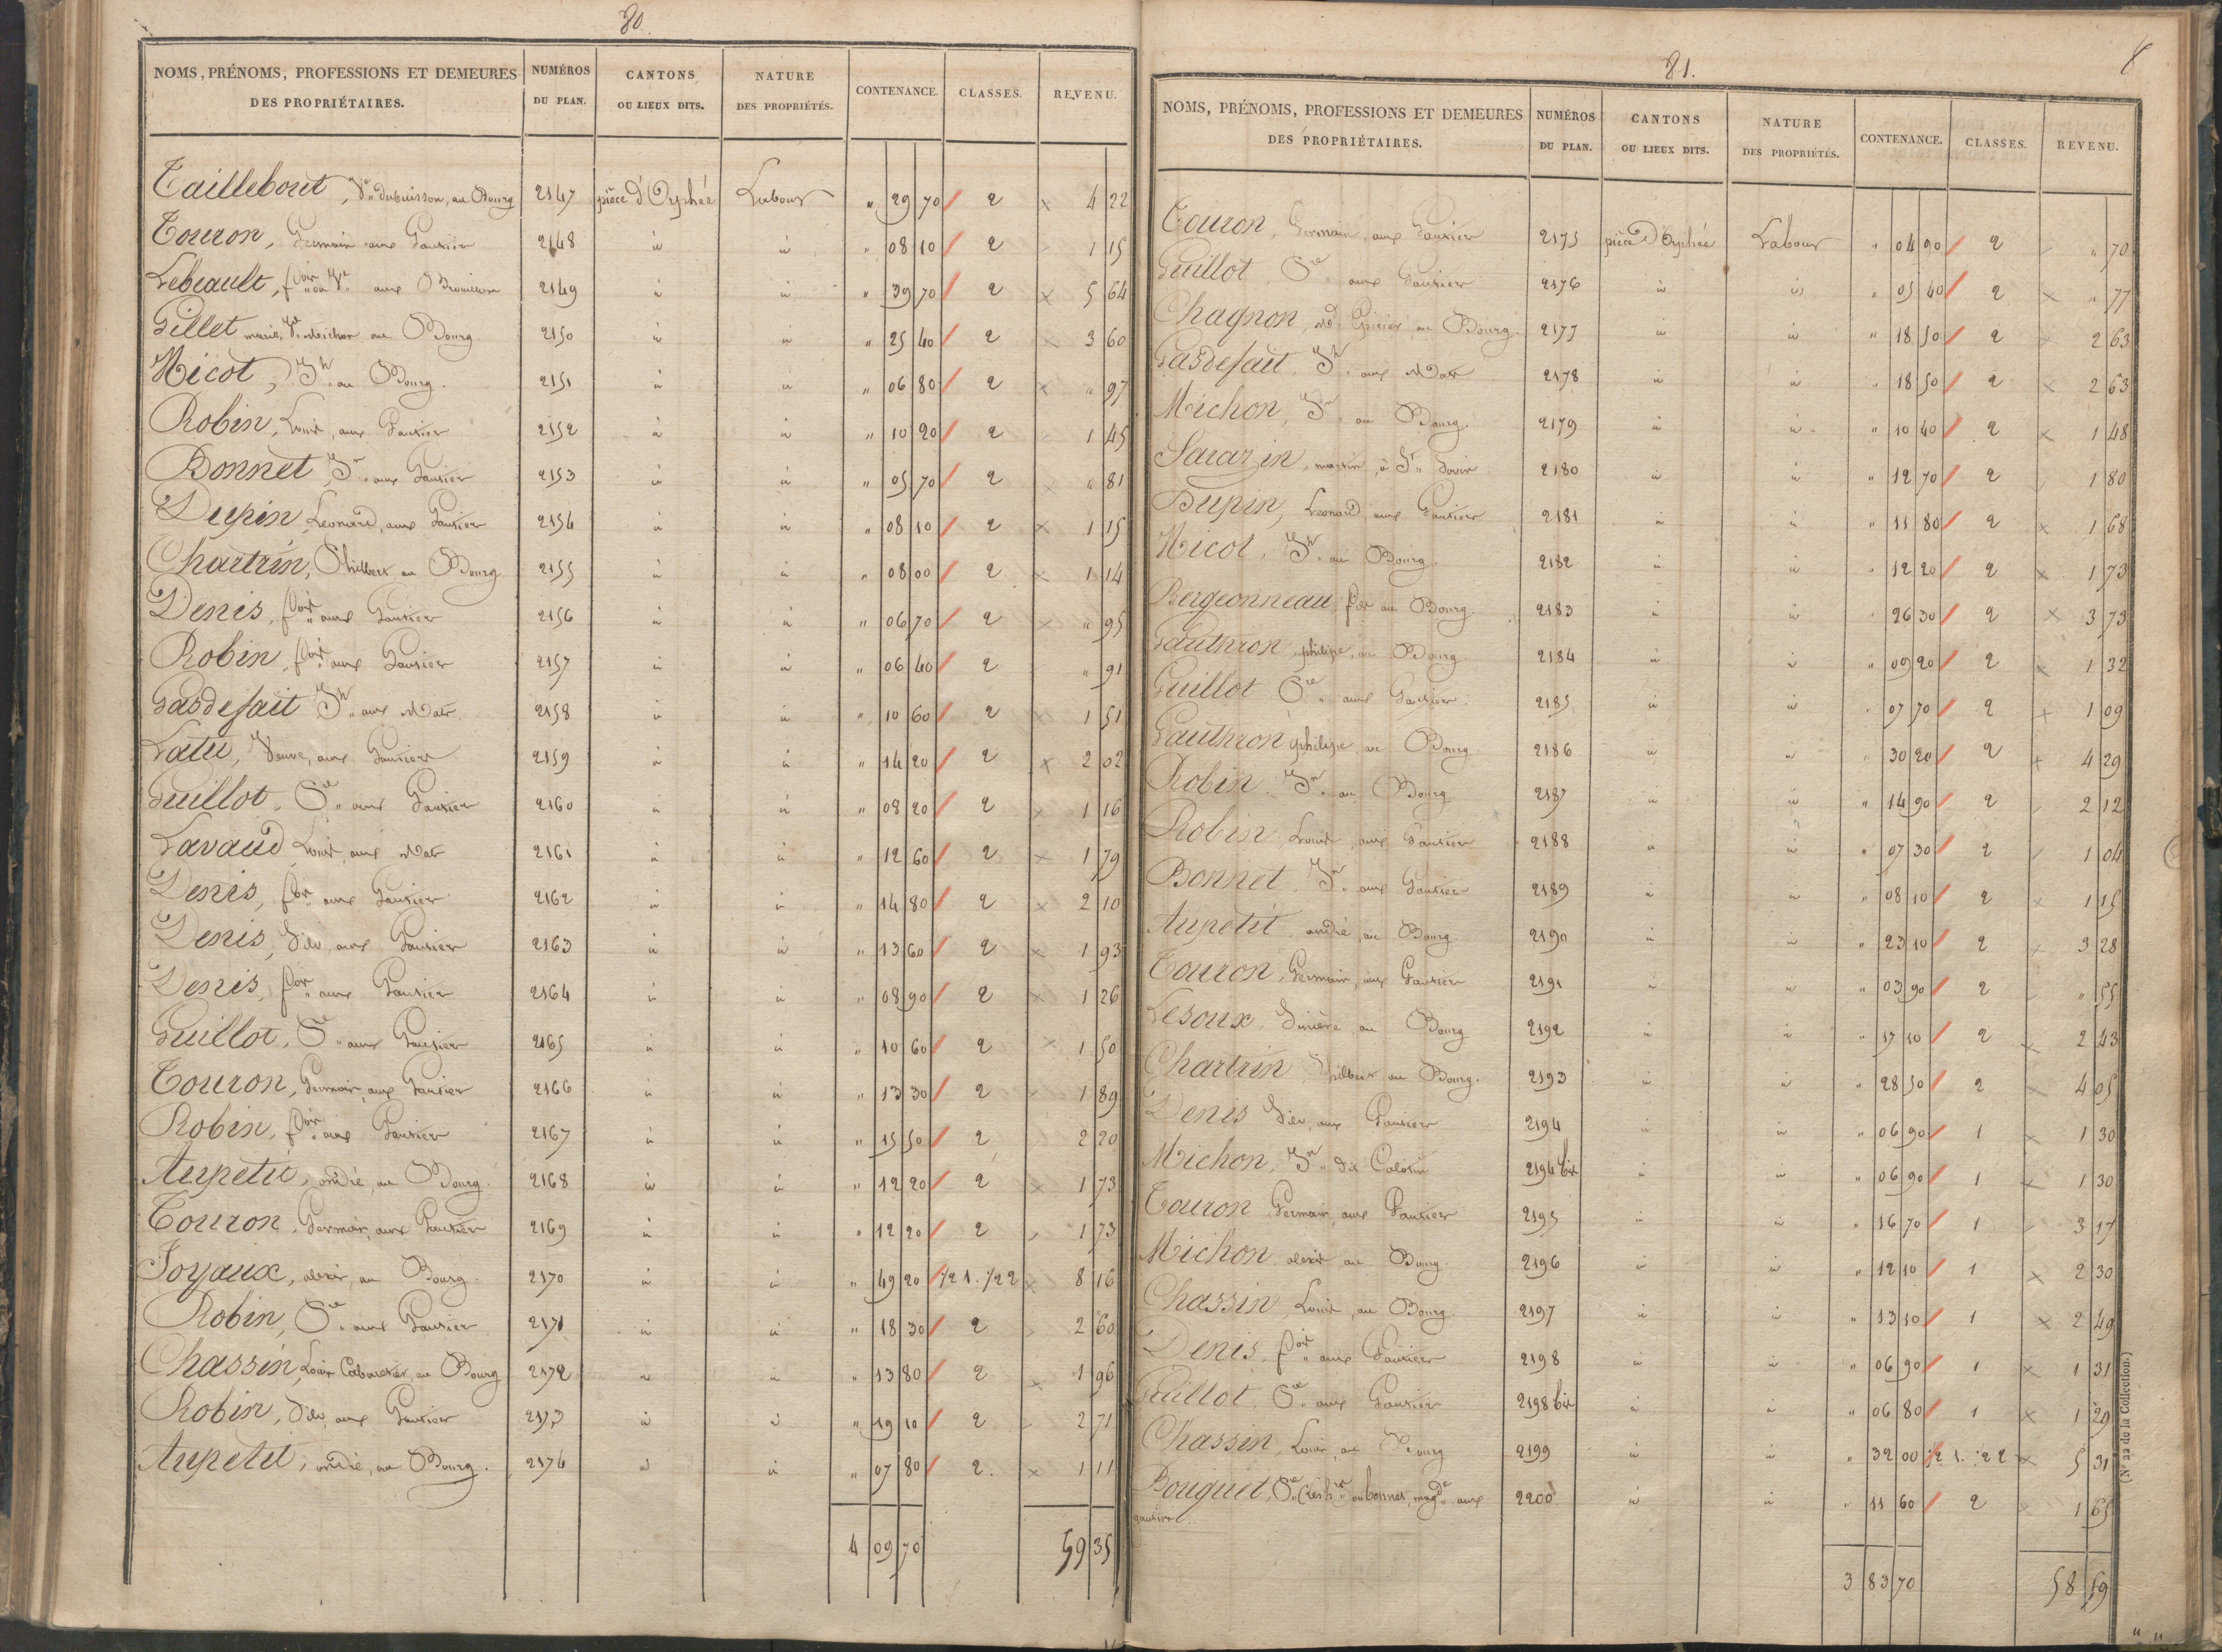 80.
NOMS, PRÉNOMS, PROFESSIONS ET DEMEURES DES PROPRIÉTAIRES. NUMÉROS DU PLAN. CANTONS OU LIEUX DITS. NATURE DES PROPRIÉTÉS. CONTENANCE. CLASSES. REVENU.
Taillebout, Ve dubuisson, au Bourg 2147 pièce d'Orphée Labour " 29 70 2 4 22
Touron, Germain aux Gautier 2148 id id " 08 10 2 1 15
Lebeault, foix ou Ve aux 2149 id id " 39 70 2 5 64
Gillet marie, Ve Michon au Bourg 2150 id id " 25 40 2 3 60
Nicot, Jh au Bourg. 2151 id id " 06 80 2 " 97
Robin, Louis, aux Gautier 2152 id id " 10 20 2 1 45
Bonnet, Jn aux Gautier 2153 id id " 05 70 2 " 81
Dupin, Leonard, aux Gautier 2154 id id " 08 10 2 1 15
Chartrin, Philbert au Bourg 2155 id id " 08 00 2 1 14
Denis, foix aux Gautier 2156 id id " 06 70 2 " 95
Robin, foix aux Gautier 2157 id id " 06 40 2 " 91
Gasdefait Jh aux Mats 2158 id id " 10 60 2 1 51
Latu, Veuve, aux Gautier 2159 id id " 14 20 2 2 02
Guillot, Pre aux Gautier 2160 id id " 08 20 2 1 16
Lavaud Louis, aux Mats 2161 id id " 12 60 2 1 79
Denis, foix aux Gautier 2162 id id " 14 80 2 2 10
Denis, Silv, aux Gautier 2163 id id " 13 60 2 1 93
Denis, foix aux Gautier 2164 id id " 08 90 2 1 26
Guillot, Pre aux Gautier 2165 id id " 10 60 2 1 50
Touron, Germain, aux Gautier 2166 id id " 13 30 2 1 89
Robin, foix aux Gautier 2167 id id " 15 50 2 2 20
Aupetit, andré, au Bourg. 2168 id id " 12 20 2 1 73
Touron, Germain, aux Gautier 2169 id id " 12 20 2 1 73
Joyaux, alexis, au Bourg. 2170 id id " 49 20 1/2 1. 1/2 2 8 16
Robin, Pre aux Gautier 2171 id id " 18 30 2 2 60
Chassin, Louis Cabaretier, au Bourg 2172 id id " 13 80 2 1 96
Robin, Silv, aux Gautier 2173 id id " 19 10 2 2 71
Aupetit, andré, au Bourg. 2174 id id " 07 80 2. 1 11
4 09 70 59 35
81.
NOMS, PRÉNOMS, PROFESSIONS ET DEMEURES DES PROPRIÉTAIRES. NUMÉROS DU PLAN. CANTONS OU LIEUX DITS. NATURE DES PROPRIÉTÉS. CONTENANCE. CLASSES. REVENU.
Touron, Germain, aux Gautier 2175 pièce d'Orphée Labour " 04 90 2 " 70
Guillot, Pre aux Gautier 2176 id id " 05 40 2 " 77
Chagnon, md Epicier au Bourg. 2177 id id " 18 50 2 2 63
Gasdefait, Jh aux Mats 2178 id id " 18 50 2 2 63
Michon, Jn au Bourg. 2179 id id " 10 40 2 1 48
Sarazin, martin, à St 2180 id id " 12 70 2 1 80
Dupin, Leonard, aux Gautier 2181 id id " 11 80 2 1 68
Nicot, Jh au Bourg. 2182 id id " 12 20 2 1 73
Bergeonneau, foix au Bourg. 2183 id id " 26 30 2 3 73
Gauthron, philippe, au Bourg 2184 id id " 09 20 2 1 32
Guillot Pre aux Gautier. 2185 id id " 07 70 2 1 09
Gauthron philippe au Bourg 2186 id id " 30 20 2 4 29
Robin Jn au Bourg 2187 id id " 14 90 2 2 12
Robin, Louis, aux Gautier 2188 id id " 07 30 2 1 04
Bonnet, Jn aux Gautier 2189 id id " 08 10 2 1 15
Aupetit andré, au Bourg. 2190 id id " 23 10 2 3 28
Touron, Germain, aux Gautier 2191 id id " 03 90 2 " 55
Lesoux, au Bourg 2192 id id " 17 10 2 2 43
Chartrin, Philbert au Bourg. 2193 id id " 28 50 2 4 05
Denis Silv, aux Gautier 2194 id id " 06 90 1 1 30
Michon, Jn dit 2194 bis id id " 06 90 1 1 30
Touron Germain, aux Gautier 2195 id id " 16 70 1 3 17
Michon alexis au Bourg. 2196 id id " 12 10 1 2 30
Chassin, Louis, au Bourg. 2197 id id " 13 10 1 2 49
Denis, foix aux Gautier 2198 id id " 06 90 1 1 31
Guillot, Pre aux Gautier 2198 bis id id " 06 80 1 1 29
Chassin, Louis, au Bourg 2199 id id " 32 00 1/2 1. 1/2 2 5 31
Bouquet, Pre ou bonnet, magde aux gautier. 2200 id id " 11 60 2 1 65
3 83 70 58 19
(N° 22 de la Collection.)